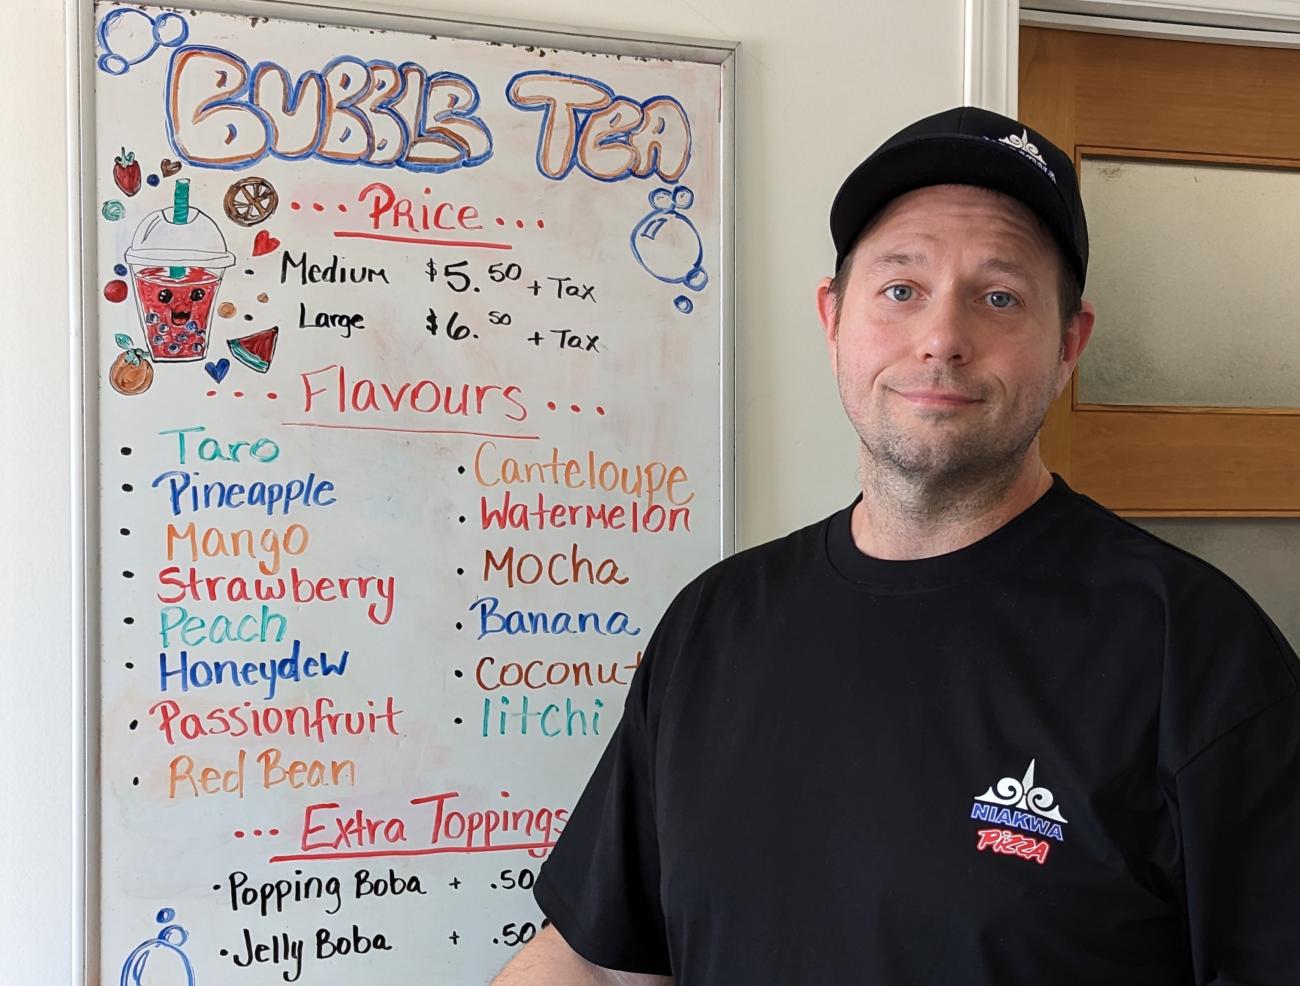 BUBBLE TEA
... PRICE ...
• Medium $5.50 + Tax
• Large $6.50 + Tax
... Flavours ...
• Taro
• Pineapple
• Mango
• Strawberry
• Peach
• Honeydew
• Passionfruit
• Red Bean
• Canteloupe
• Watermelon
• Mocha
• Banana
• Coconut
• litchi
... Extra Toppings
• Popping Boba + .50
• Jelly Boba + .50
NIAKWA
PIZZA